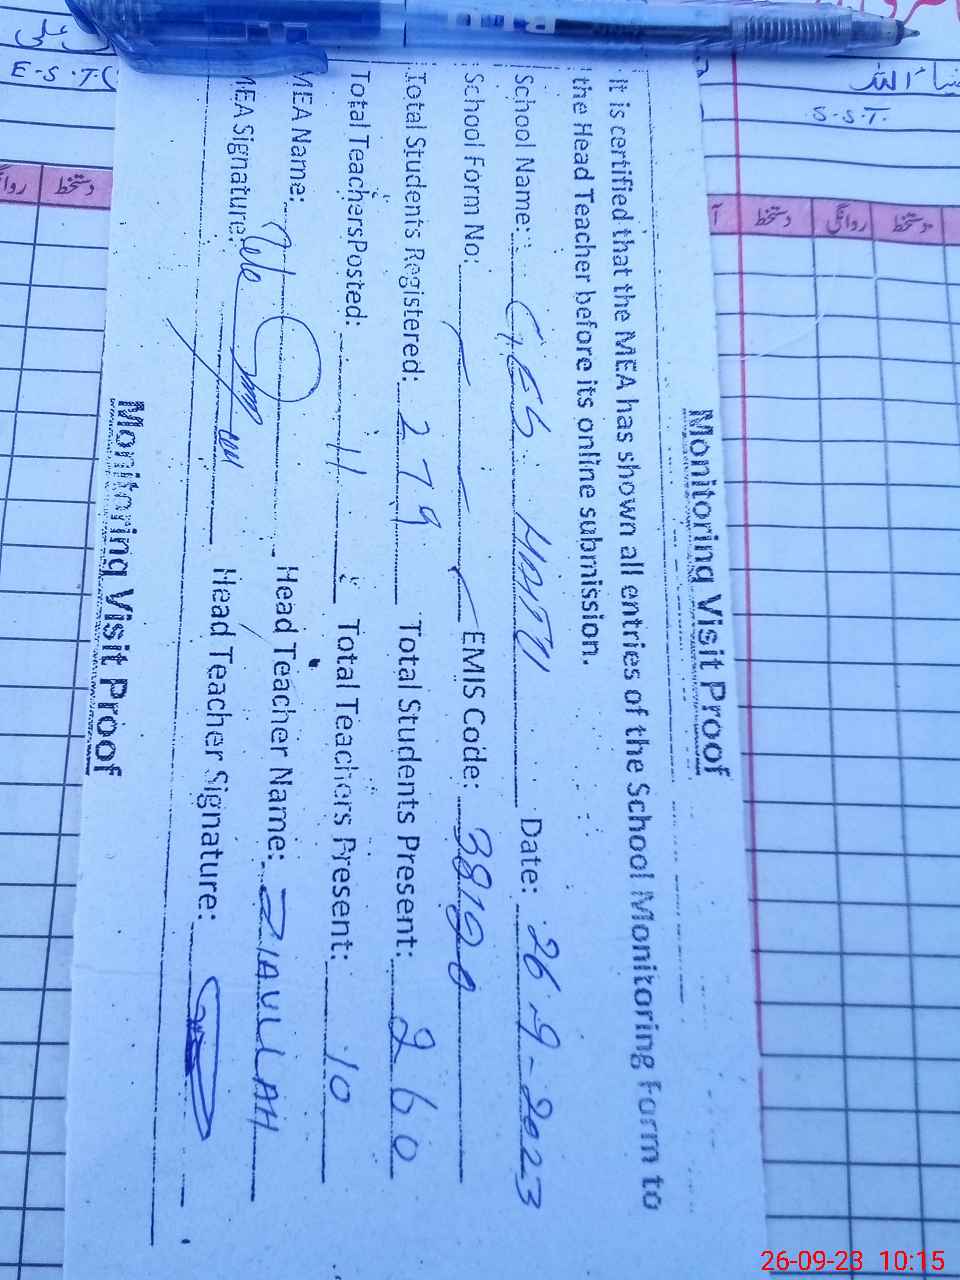 Monitoring Visit Proof
It is certified that the MEA has shown all entries of the School Monitoring Form to
the Head Teacher before its online submission.
School Name: Date: 26-9-2023
School Form No: EMIS Code:
Total Students Registered: 279 Total Students Present: 260
Total Teachers Posted: 11 Total Teachers Present: 10
MEA Name: Head Teacher Name: ZIAULLAH
MEA Signature: Head Teacher Signature:
Monitoring Visit Proof
E.S.T
S.S.T.
دستخط
دستخط
روانگی
دستخط
26-09-23 10:15